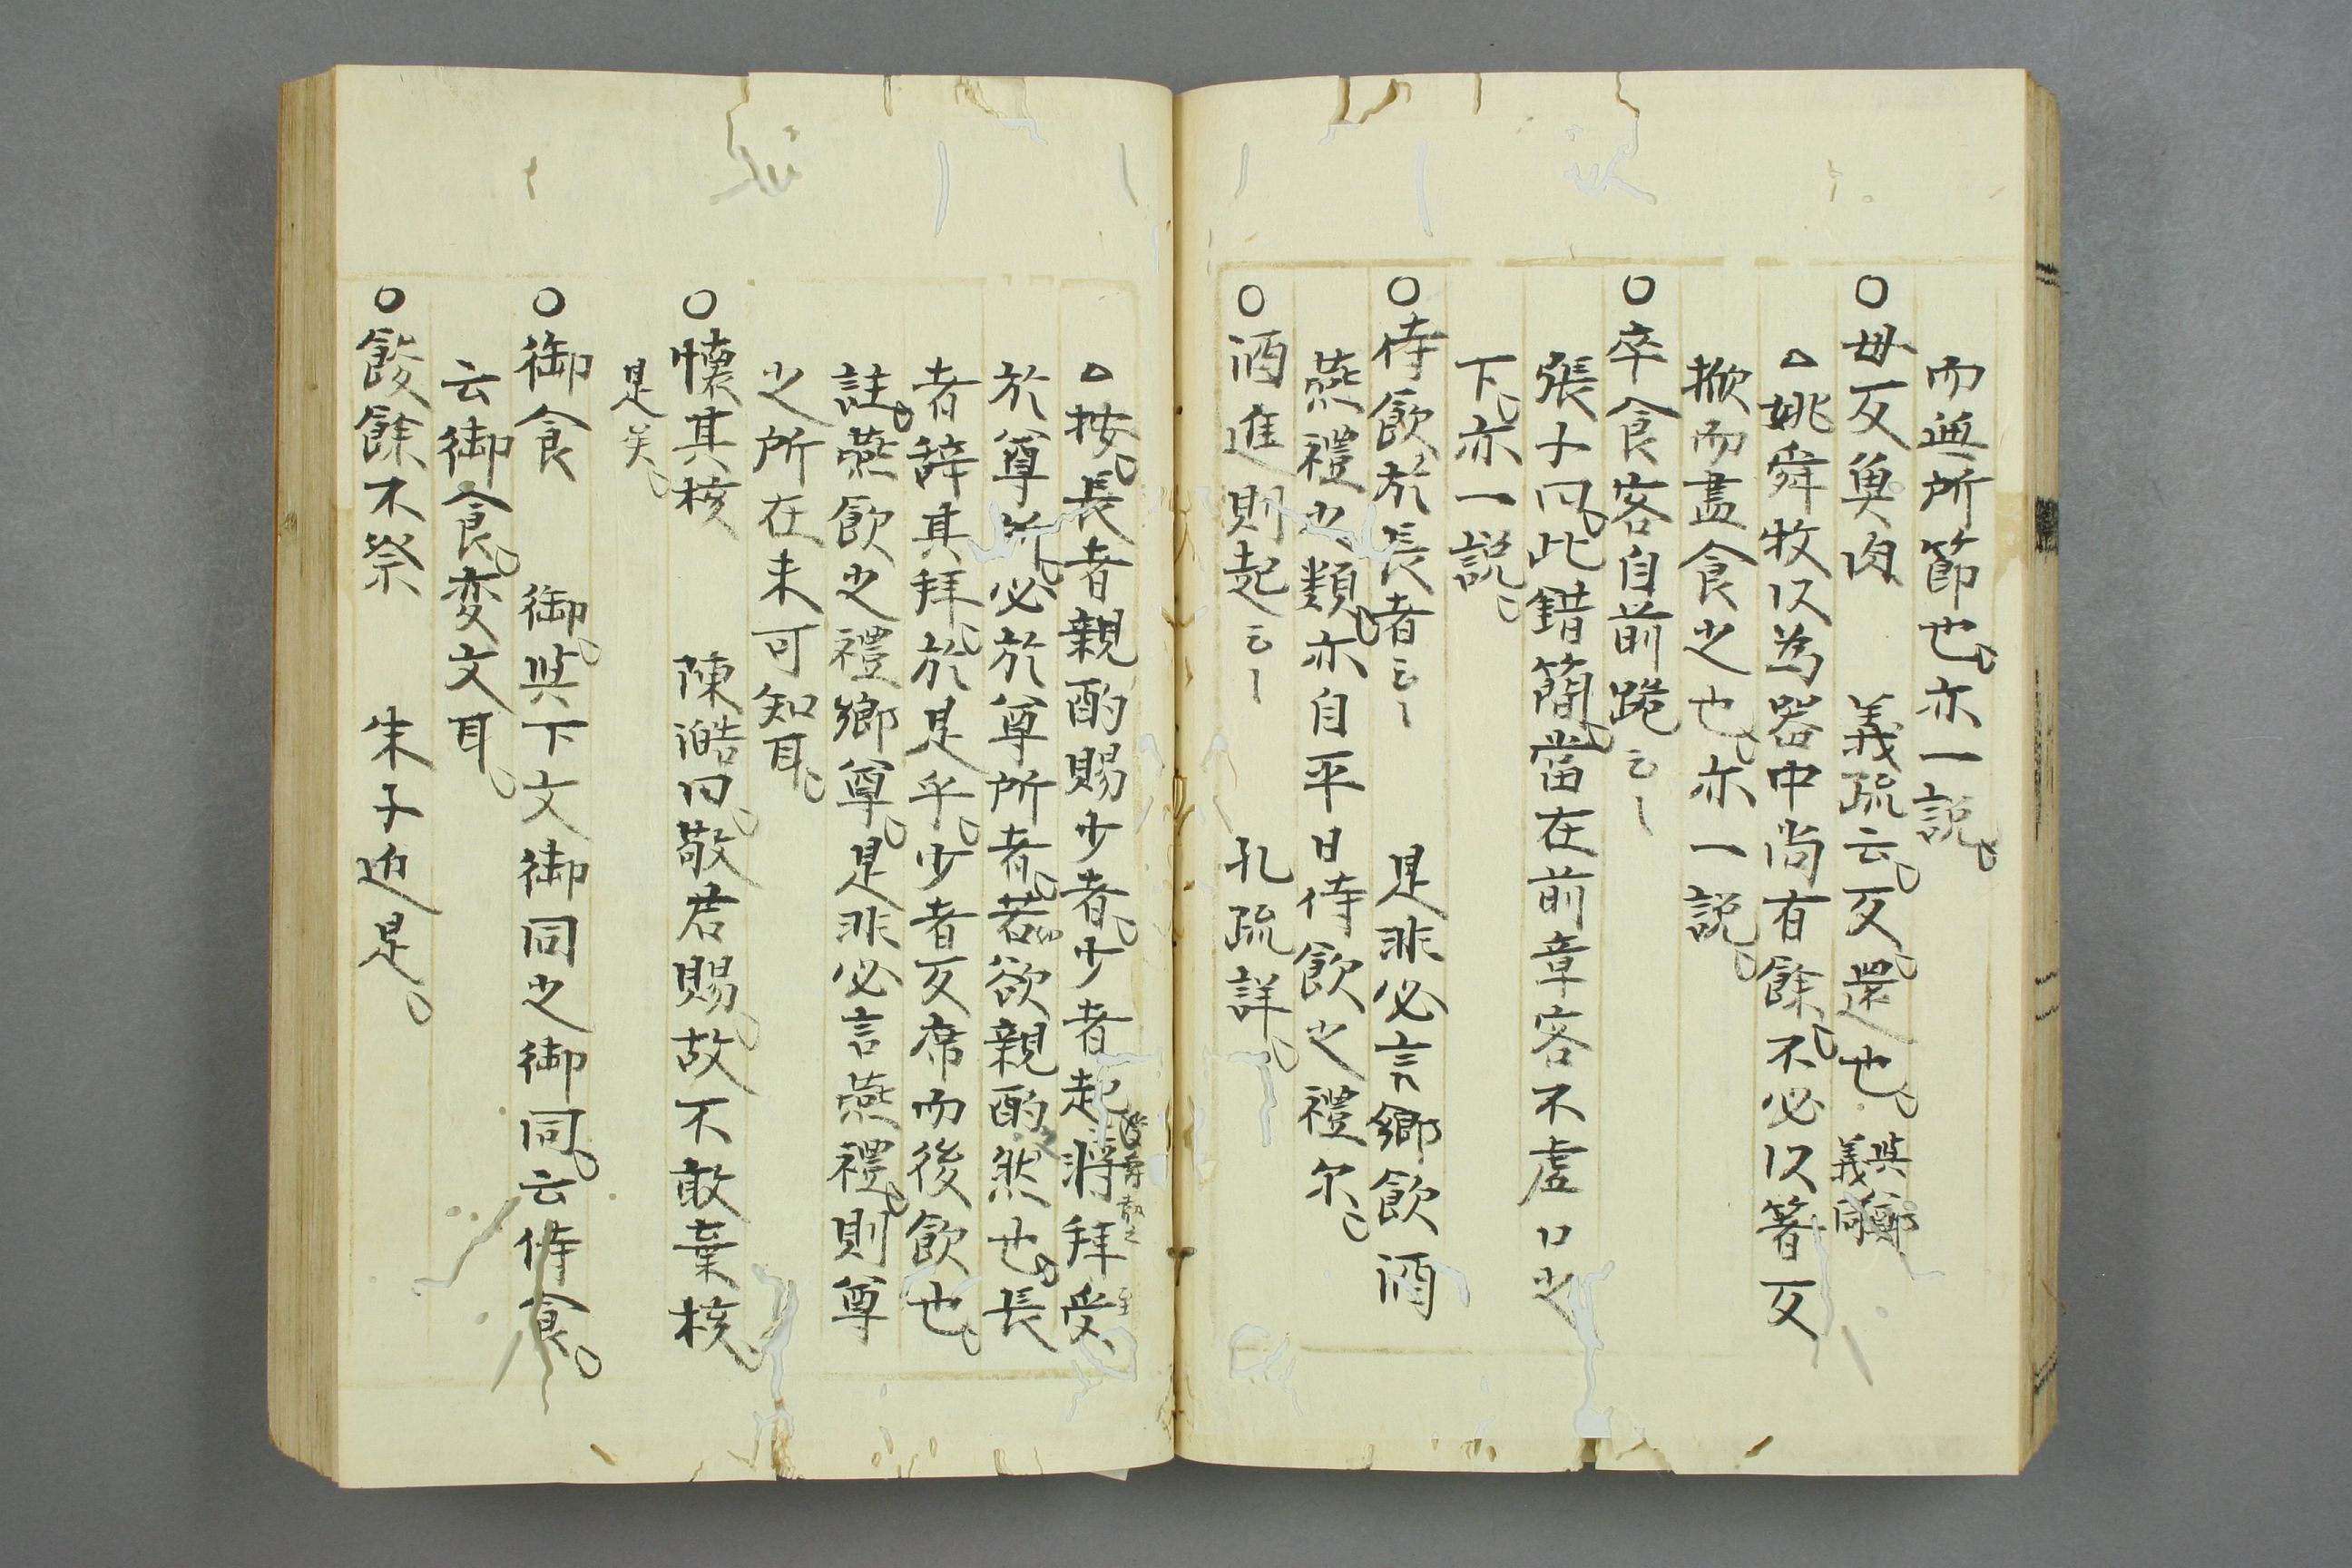 而無所節也亦一説
〇毋反魚肉　義疏云反還也與鄭義同
△姚舜牧以為器中尚有餘不必以箸反
掀而盡食之也亦一説
〇卒食客自前跪云〻
張子曰此錯簡當在前章客不虚口之
下亦一説
〇侍飲於長者云〻　是非必言鄉飲酒
燕禮之類亦自平日侍飲之禮尔
〇酒進則起云〻　孔疏詳
△按長者親酌賜少者少者起將拜受
於尊所必於尊所者若欲親酌然也長
者辞其拜於是乎少者反席而後飲也
註燕飲之禮鄉尊是非必言燕禮則尊
之所在未可知耳
〇懐其核　陳澔曰敬君賜故不敢棄核
是矣
〇御食　御與下文御同之御同云侍食
云御食変文耳
〇餕餘不祭　朱子迫是